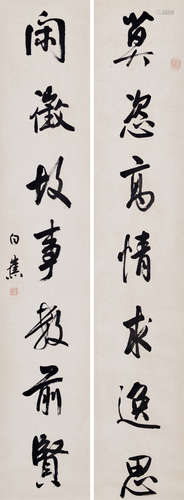 莫恣高情求逸思
闲徵故事教前賢
白蕉